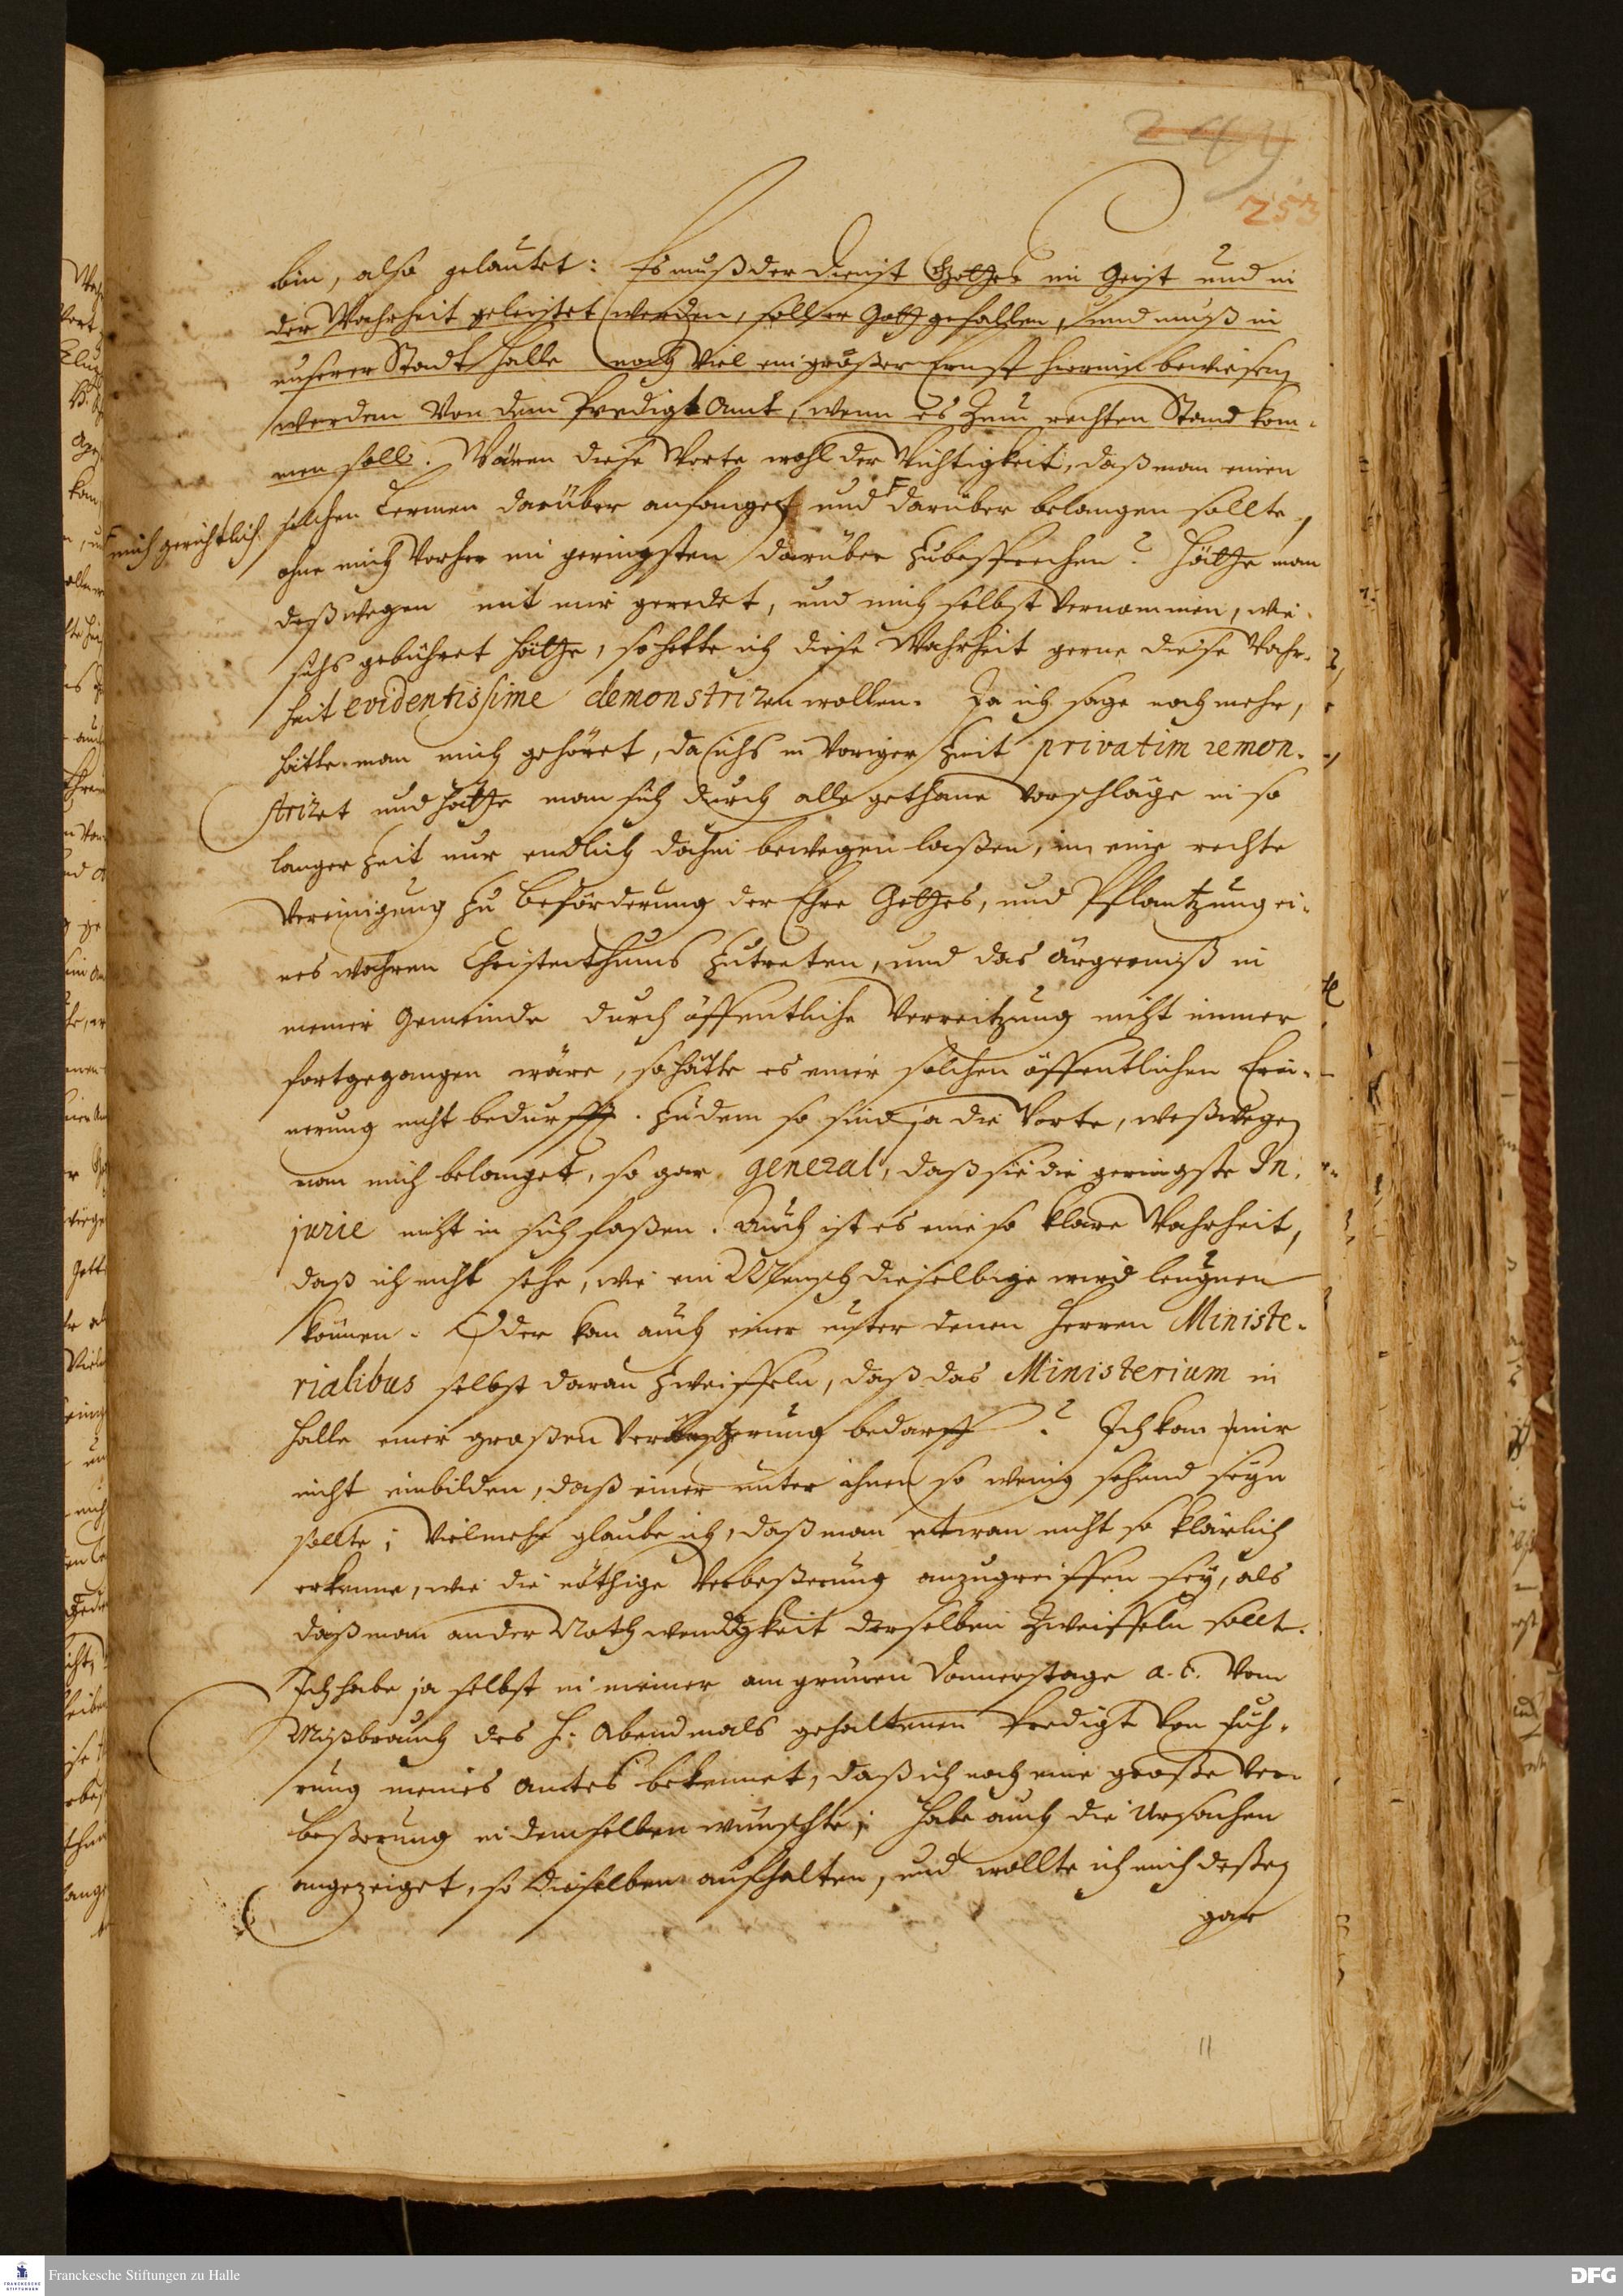 253
bin, also gelautet: Es muß der Dienst Gottes im Geist und in
der Wahrheit geleistet werden, soll er Gott gefallen, und muß in
unserer Stadt Halle noch viel ein größer Ernst hierin bewiesen
werden von dem Predigt Amt, wenn es zum rechten Stand kom-
men soll. Wären diese Worte wohl der Wichtigkeit, daß man einen
solchen Lermen darüber anfangen und darüber belangen sollte,
mich gerichtlich
ohne mich vorher im geringsten darüber zubesprechen? Hätte man
deßwegen mit mir geredet, und mich selbst vernommen, wie
sichs gebühret hätte, so hette ich diese Wahrheit gerne diese Wahr-
heit evidentissime demonstriren wollen. Ja ich sage noch mehr,
hätte man mich gehöret, da ichs in voriger Zeit privatim remon-
striret und hätte man sich durch alle gethane Vorschläge in so
langer Zeit nur endlich dahin bewegen laßen, in eine rechte
Vereinigung zu Beförderung der Ehre Gottes, und Pflantzung ei-
nes wahren Christenthums zutreten, und das ärgerniß in
meiner Gemeinde durch öffentliche Verreitzung nicht immer
fortgegangen wäre, so hätte es einer solchen öffentlichen Erin-
nerung nicht bedurfft. Zudem so sind ja die Worte, weßwegen
man mich belanget, so gar general, daß sie die geringste In-
jurie nicht in sich faßen. Auch ist es eine so klare Wahrheit,
daß ich nicht sehe, wie ein Mensch dieselbige wird leugnen
können. Oder kan auch einer unter denen Herren Ministe-
rialibus selbst daran zweiffeln, daß das Ministerium in
Halle einer großen Verbeßerung bedarff? Ich kan mir
nicht einbilden, daß einer unter ihnen so wenig sehend seyn
sollte; vielmehr glaube ich, daß man etwan nicht so klärlich
erkenne, wie die nöthige Verbeßerung anzugreiffen sey, als
daß man an der Nothwendigkeit derselben zweiffeln sollte.
Ich habe ja selbst in meiner am grünen Donnerstage a. c. vom
Mißbrauch des H. Abendmals gehaltenen Predigt von Füh-
rung meines Amtes bekennet, daß ich noch eine große Ver-
beßerung in demselben wünschte; habe auch die Ursachen
angezeiget, so dieselben auffhalten, und wollte ich mich deßen
gar
11
Franckesche Stiftungen zu Halle
DFG